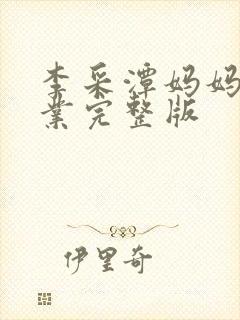 李采潭妈妈
业完整版
伊里奇